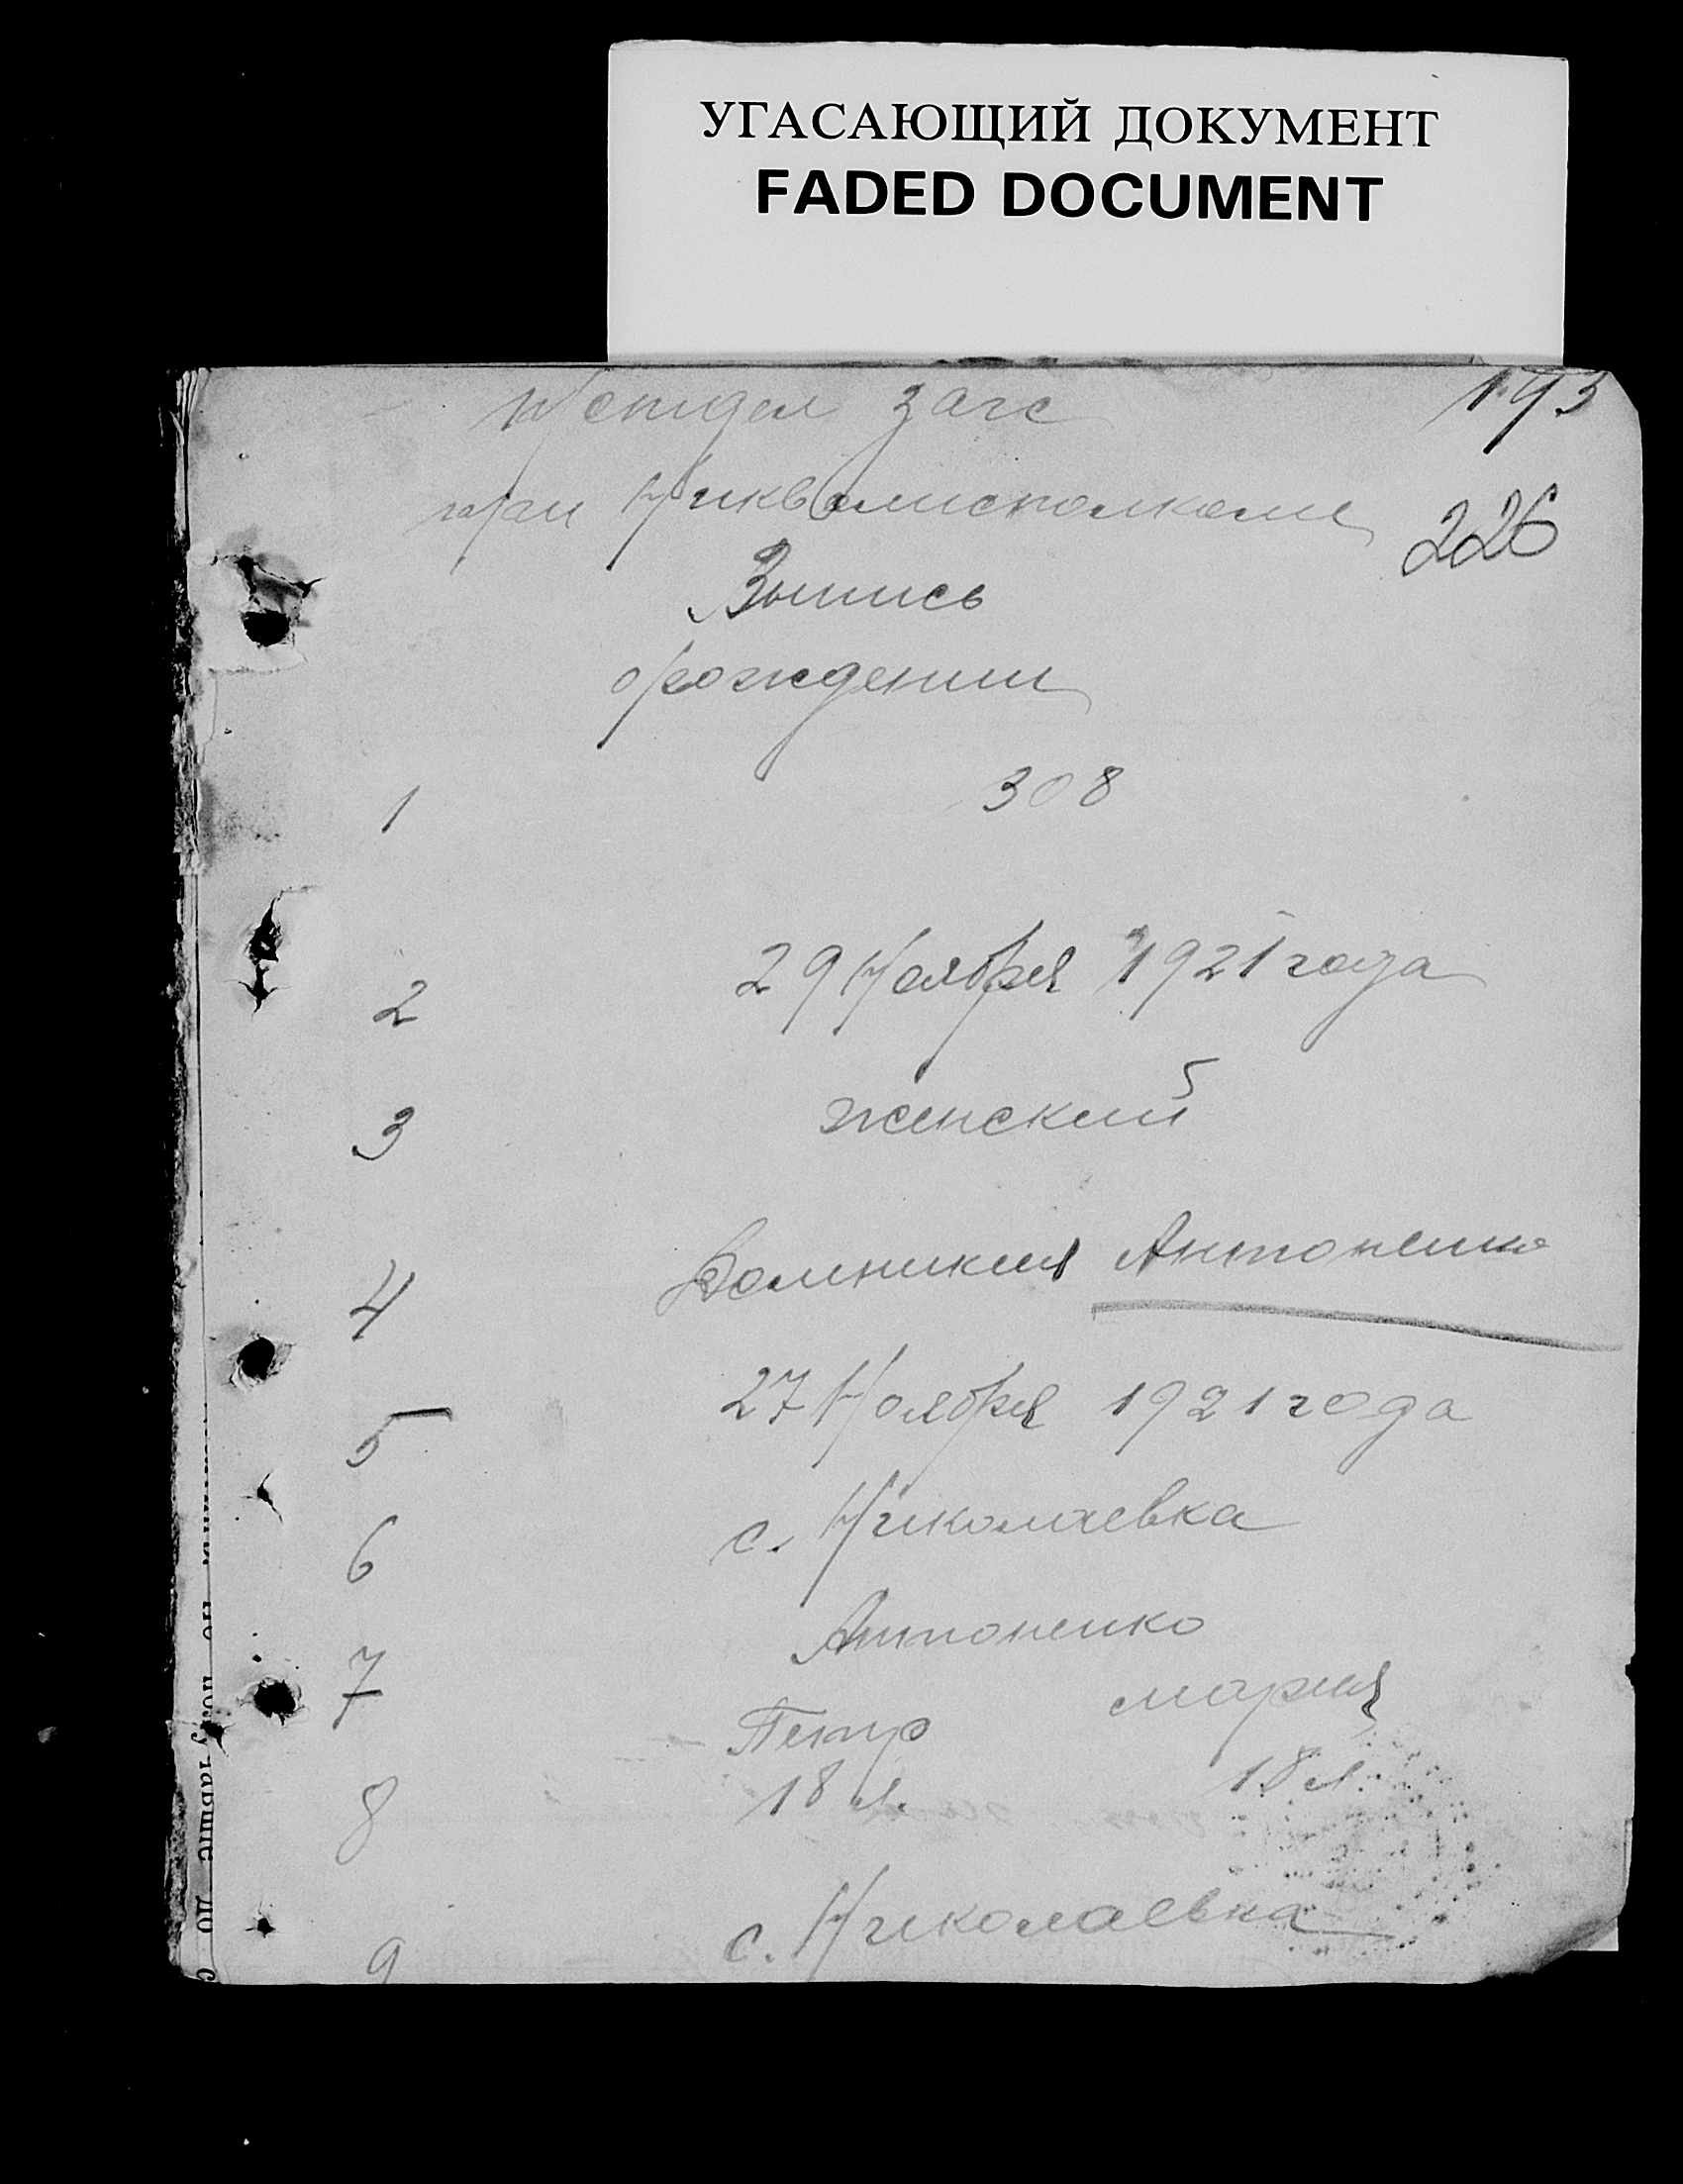 УГАСАЮЩИЙ ДОКУМЕНТ
FADED DOCUMENT
загс
193
при Никволисполкоме
226
Выпись
о рождении
1 308
2 29 Ноября 1921 года
3 женский
4 Домникия Антоненко
5 27 Ноября 1921 года
6 с. Николаевка
7 Антоненко
Петр Мария
8 18 л. 18 л.
9 с. Николаевка